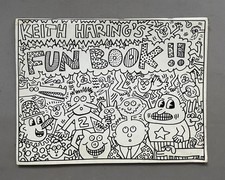 KEITH HARING'S
FUN BOOK!!